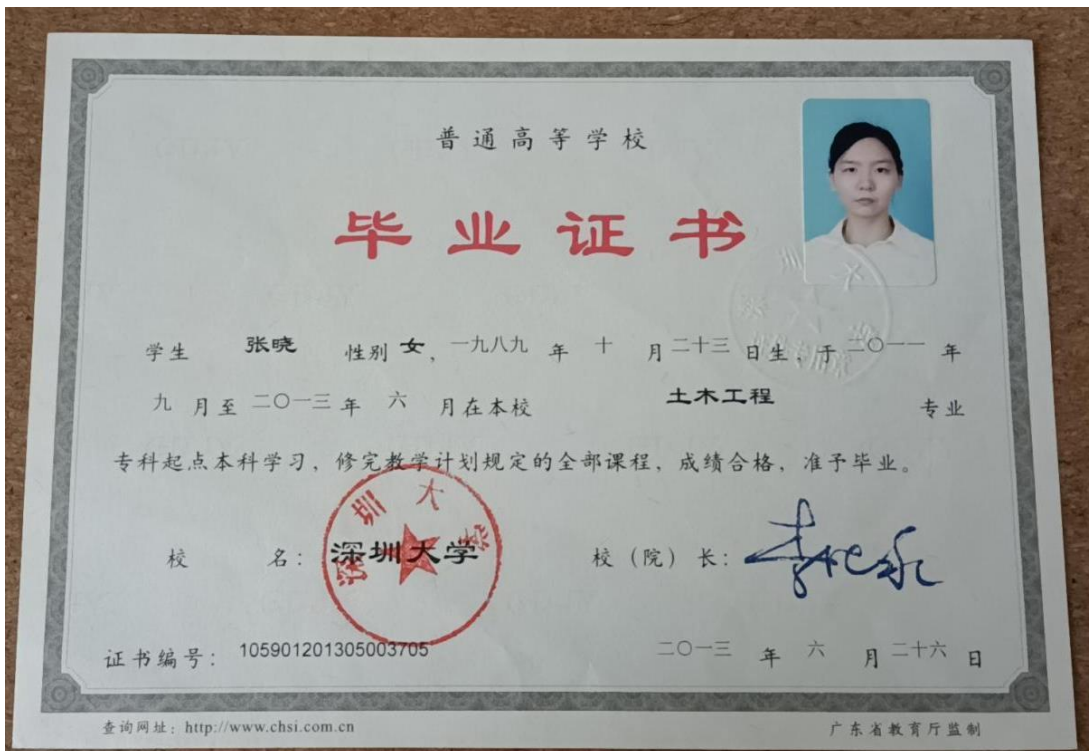 普通高等学校
毕业证书
学生 张晓 性别 女，一九八九 年 十 月 二十三 日生，于 二〇一一 年
九 月至 二〇一三 年 六 月在本校 土木工程 专业
专科起点本科学习，修完教学计划规定的全部课程，成绩合格，准予毕业。
深圳大学
校 名：深圳大学 校（院）长：
证书编号：105901201305003705 二〇一三 年 六 月 二十六 日
查询网址：http://www.chsi.com.cn 广东省教育厅监制